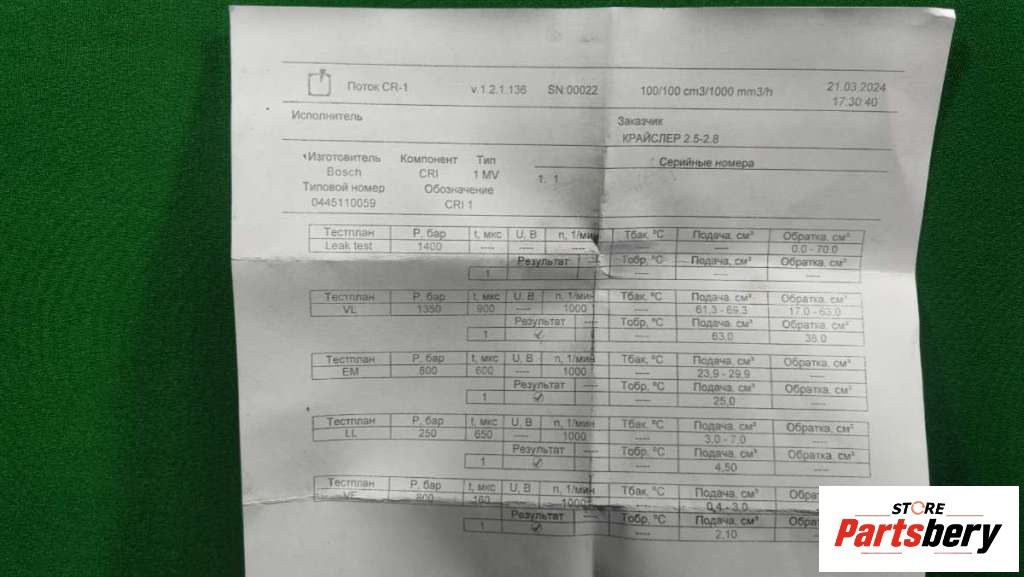 Поток CR-1 v.1.2.1.136 SN:00022 100/100 cm3/1000 mm3/h 21.03.2024
17:30:40
Исполнитель Заказчик
КРАЙСЛЕР 2.5-2.8
Изготовитель Компонент Тип Серийные номера
Bosch CRI 1 MV 1. 1
Типовой номер Обозначение
0445110059 CRI 1
Тестплан P, бар t, мкс U, В n, 1/мин Тбак, ºC Подача, см³ Обратка, см³
Leak test 1400 ---- ---- ---- ---- ---- 0,0 - 70,0
Результат ---- Тобр, ºC Подача, см³ Обратка, см³
1 ---- ---- ----
Тестплан P, бар t, мкс U, В n, 1/мин Тбак, ºC Подача, см³ Обратка, см³
VL 1350 900 ---- 1000 ---- 61,3 - 69,3 17,0 - 63,0
Результат ---- Тобр, ºC Подача, см³ Обратка, см³
1 ---- 63,0 38,0
Тестплан P, бар t, мкс U, В n, 1/мин Тбак, ºC Подача, см³ Обратка, см³
EM 800 600 ---- 1000 ---- 23,9 - 29,9 ----
Результат ---- Тобр, ºC Подача, см³ Обратка, см³
1 ---- 25,0 ----
Тестплан P, бар t, мкс U, В n, 1/мин Тбак, ºC Подача, см³ Обратка, см³
LL 250 650 ---- 1000 ---- 3,0 - 7,0 ----
Результат Тобр, ºC Подача, см³ Обратка, см³
1 ---- 4,50 ----
Тестплан P, бар t, мкс U, В n, 1/мин Тбак, ºC Подача, см³
VE 800 160 ---- 1000 ---- 0,4 - 3,0
Результат ---- Тобр, ºC Подача, см³
1 ---- 2,10
STORE
Partsbery